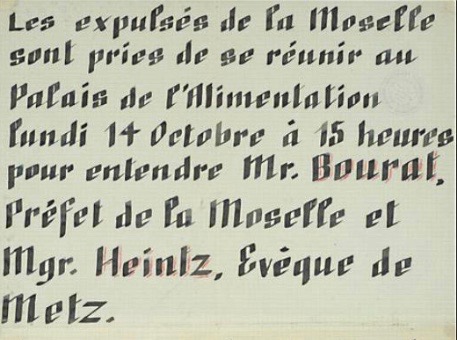 Les expulsés de la Moselle
sont pries de se réunir au
Palais de l'Alimentation
lundi 14 Octobre à 15 heures
pour entendre Mr. Bourat,
Préfet de la Moselle et
Mgr. Heintz, Evêque de
Metz.